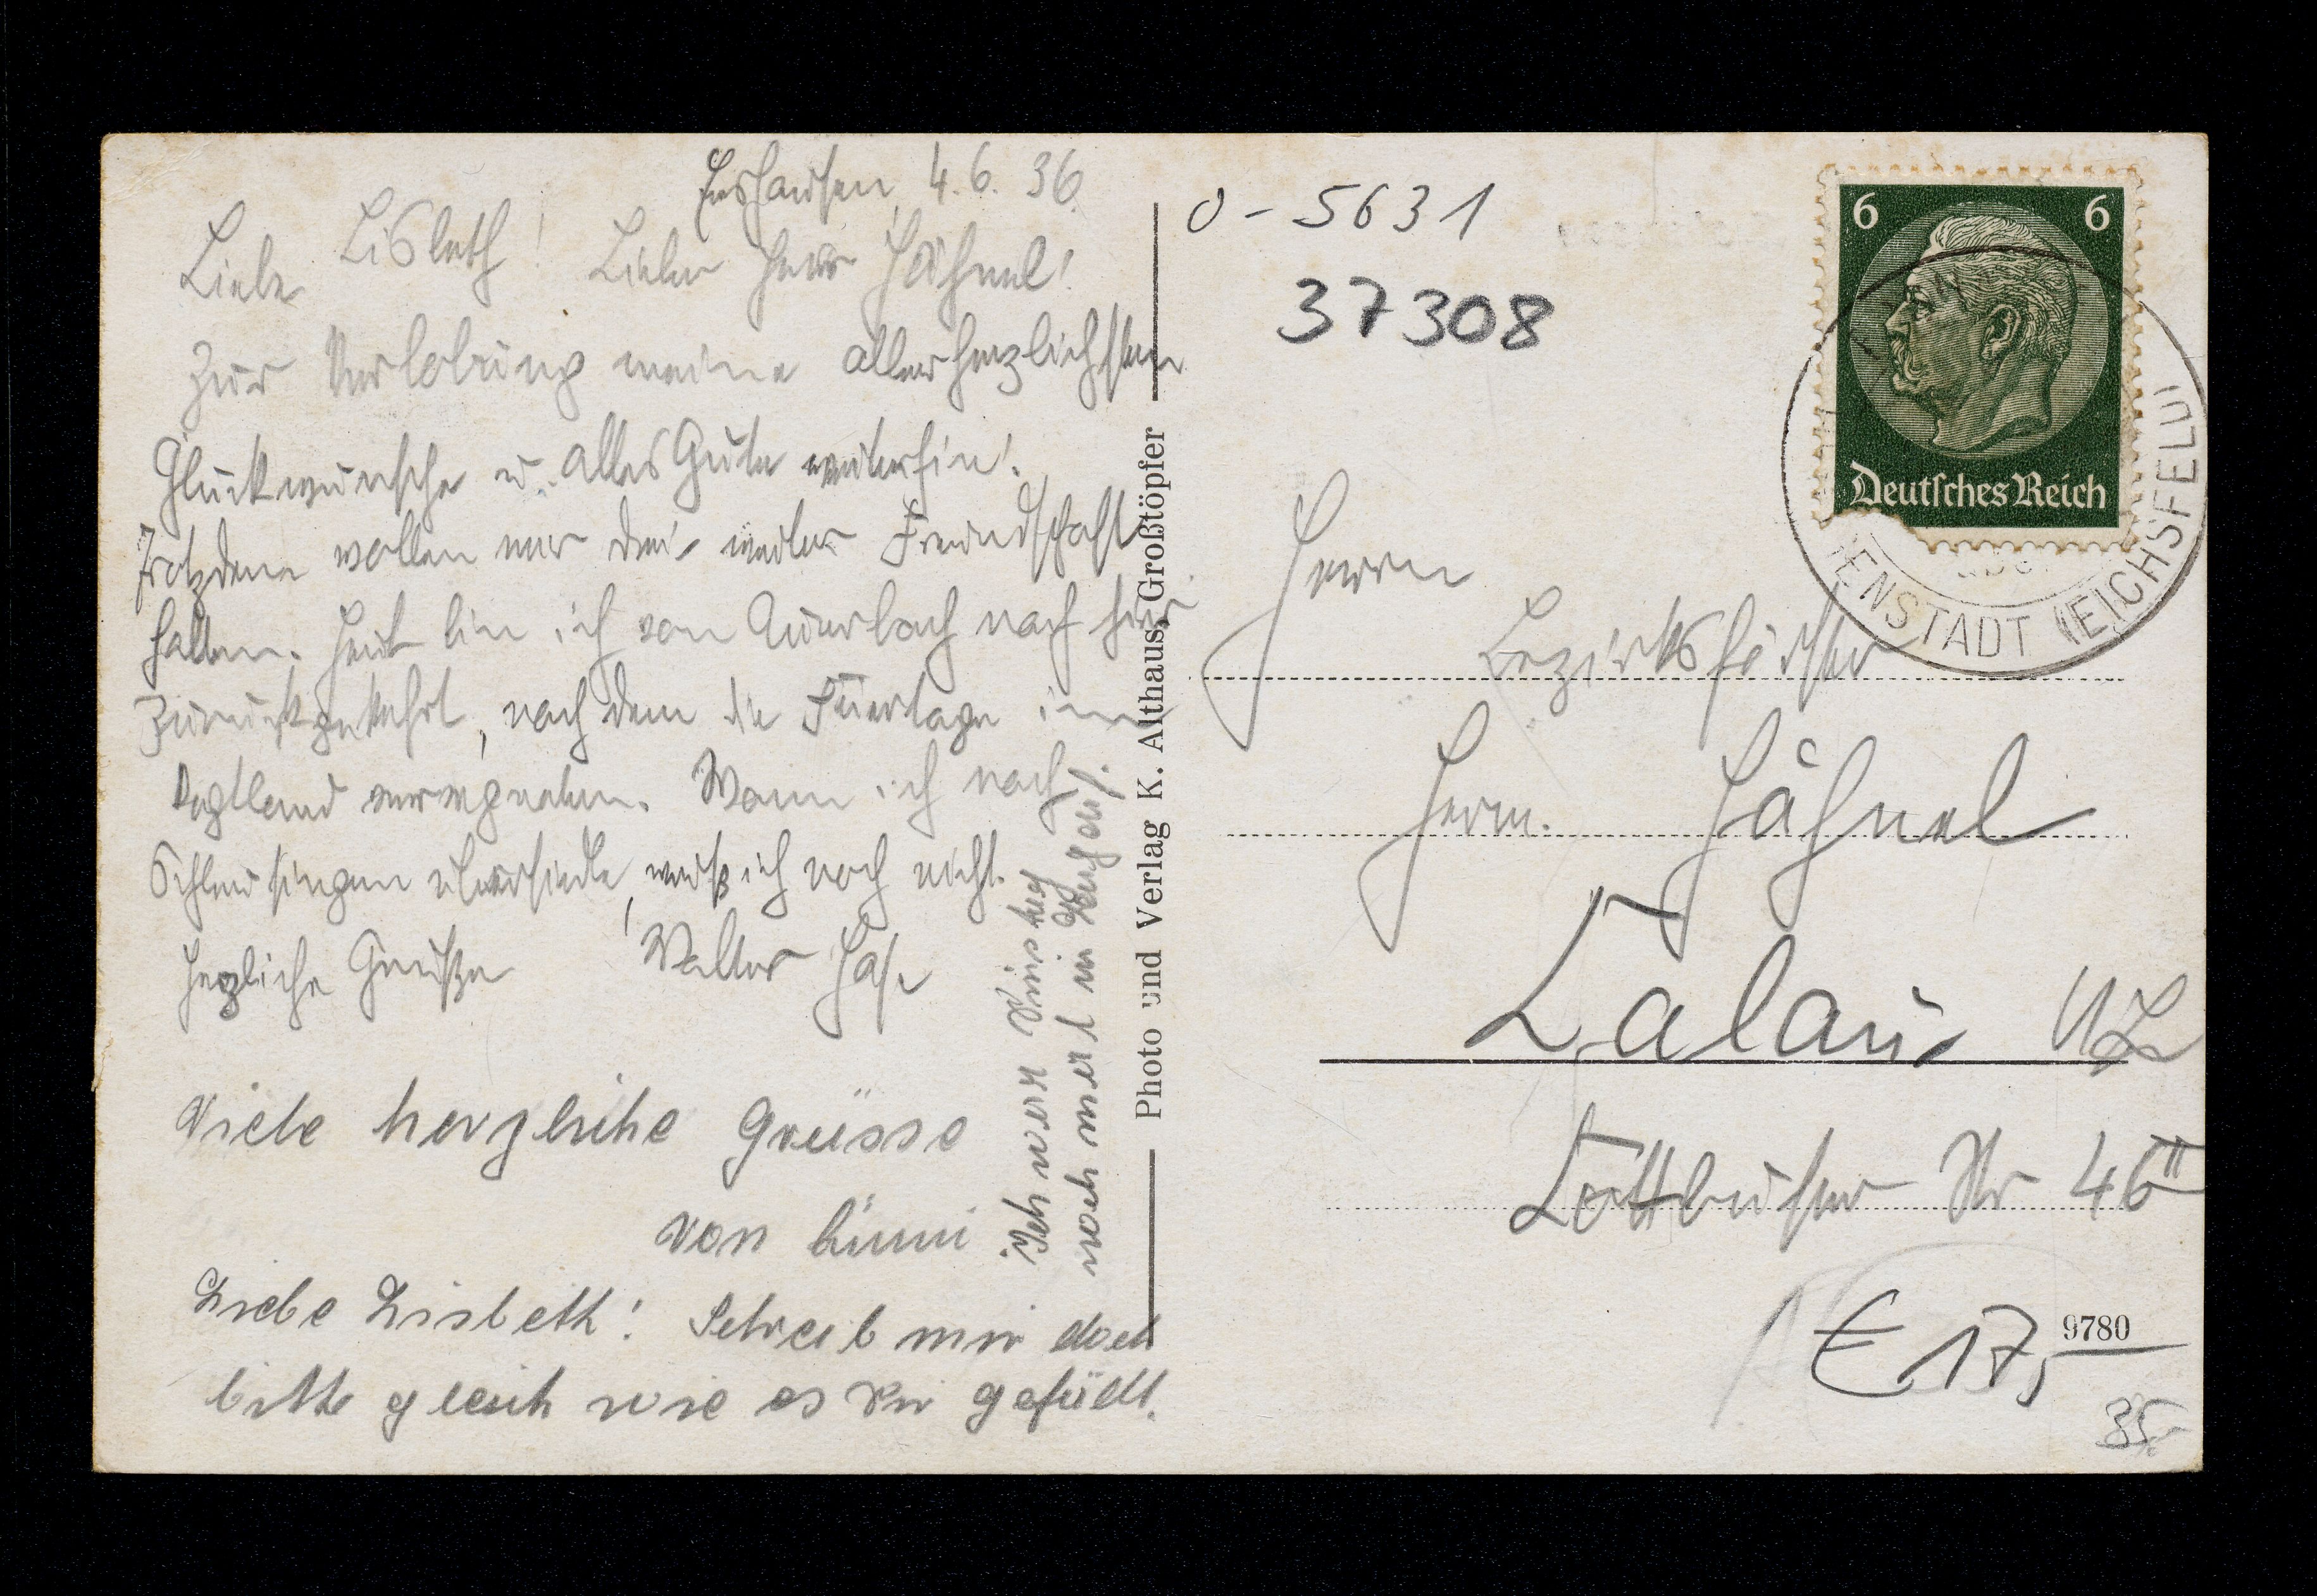 4.6.36.
Liebe Lisbeth! Lieber Herr Jähnel!
Zur Verlobung meine allerherzlichsten
Glückwünsche u. alles Gute weiterhin!
Trotzdem wollen wir drei weiter Freundschaft
halten. Heut bin ich von Auerbach nach hier
zurückgekehrt, nach dem die Feiertage im
Vogtland verregneten. Wann ich nach
Schleusingen übersiedle, weiß ich noch nicht.
Herzliche Grüße Walter
Viele herzliche Grüsse
von
Liebe Lisbeth! Schreib mir doch
bitte gleich wie es Dir gefällt.
Ich
noch mal in
Photo und Verlag K. Althaus, Großtöpfer
0-5631
37308
6 6
Deutsches Reich
ENSTADT (EICHSFELD)
Herrn
Bezirksförster
Herm. Jähnel
Calau NL
Cottbuser Str 46 II
9780
€ 17,
35.-